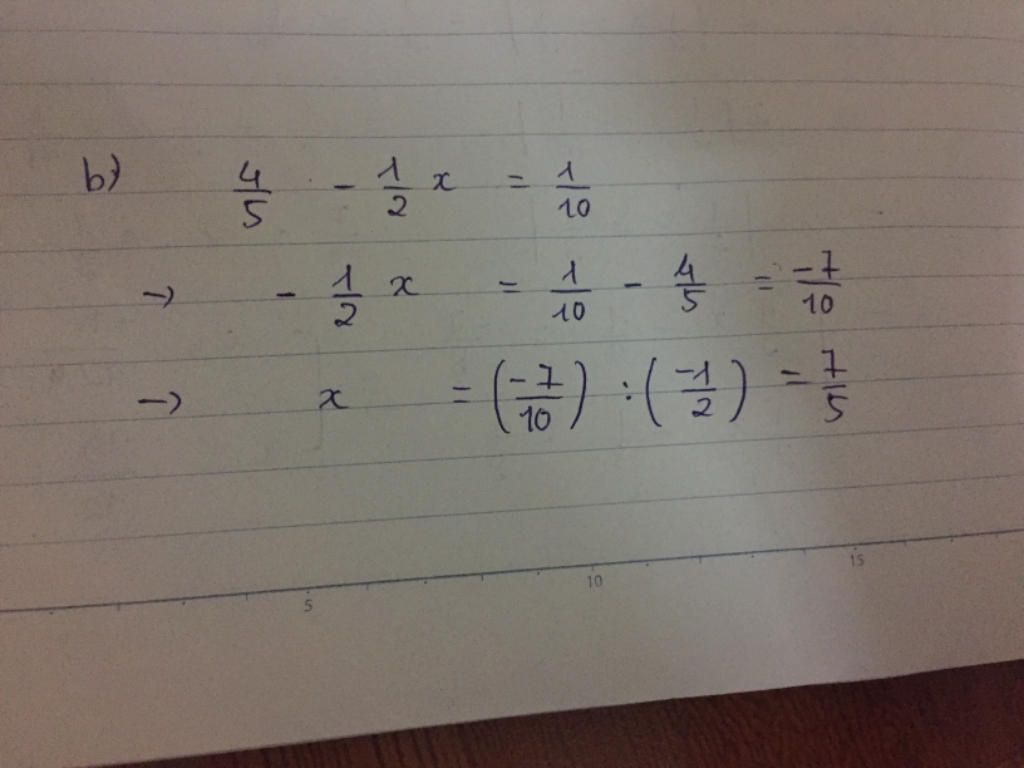 b) 4/5 - 1/2 x = 1/10
→ - 1/2 x = 1/10 - 4/5 = -7/10
→ x = (-7/10) : (-1/2) = 7/5
5 10 15